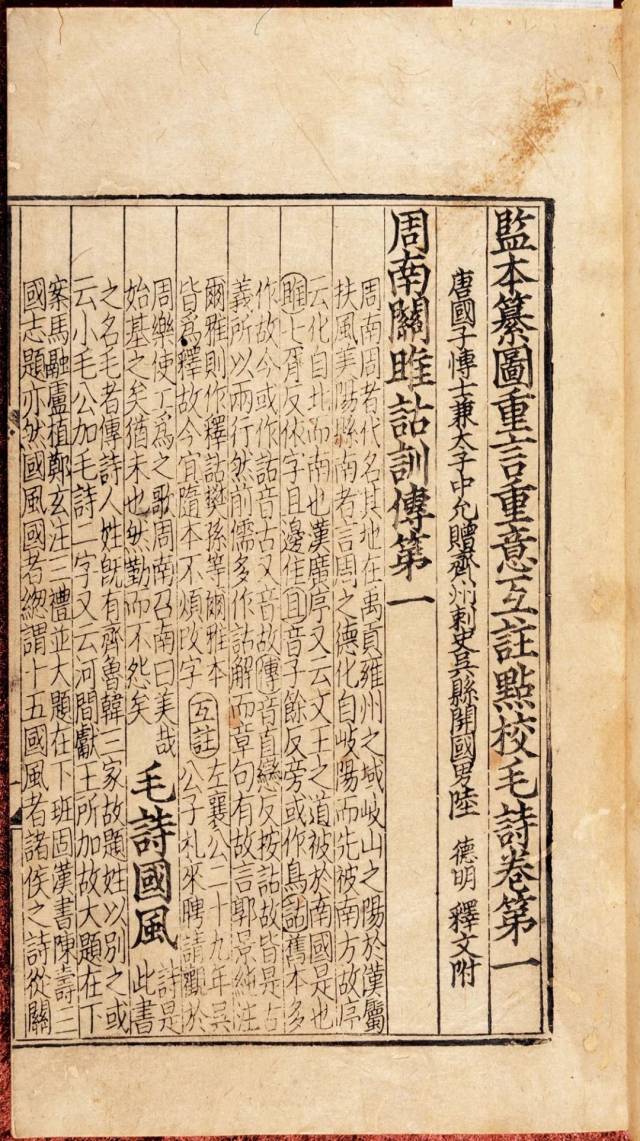 監本纂圖重言重意互註點校毛詩卷第一
唐國子博士兼大子中允贈齊州刺史吳縣開國男陸 德明 釋文附
周南關雎詁訓傳第一
周南周者代名其地在禹貢雍州之域岐山之陽於漢屬
扶風美陽縣南者言周之德化自岐陽而先被南方故序
云化自北而南也漢廣序又云文王之道被於南國是也
雎七胥反依字且邊隹且音子餘反旁或作鳥詁舊本多
作故今或作詁音古又音故傳音直戀反按詁故皆是古
義所以兩行然前儒多作詁解而章句有故言郭景純注
爾雅則作釋詁樊孫等爾雅本
皆爲釋故今宜隋本不煩改字
互註
左襄公二十九年吳
公子札來聘請觀於
周樂使工爲之歌周南召南曰美哉
始基之矣猶未也然勤而不怨矣
毛詩國風
詩是
此書
之名毛者傳詩人姓旣有齊魯韓三家故題姓以別之或
云小毛公加毛詩二字又云河間獻王所加故大題在下
案馬融盧植鄭玄注三禮並大題在下班固漢書陳壽三
國志題亦然國風國者總謂十五國風者諸侯之詩從關